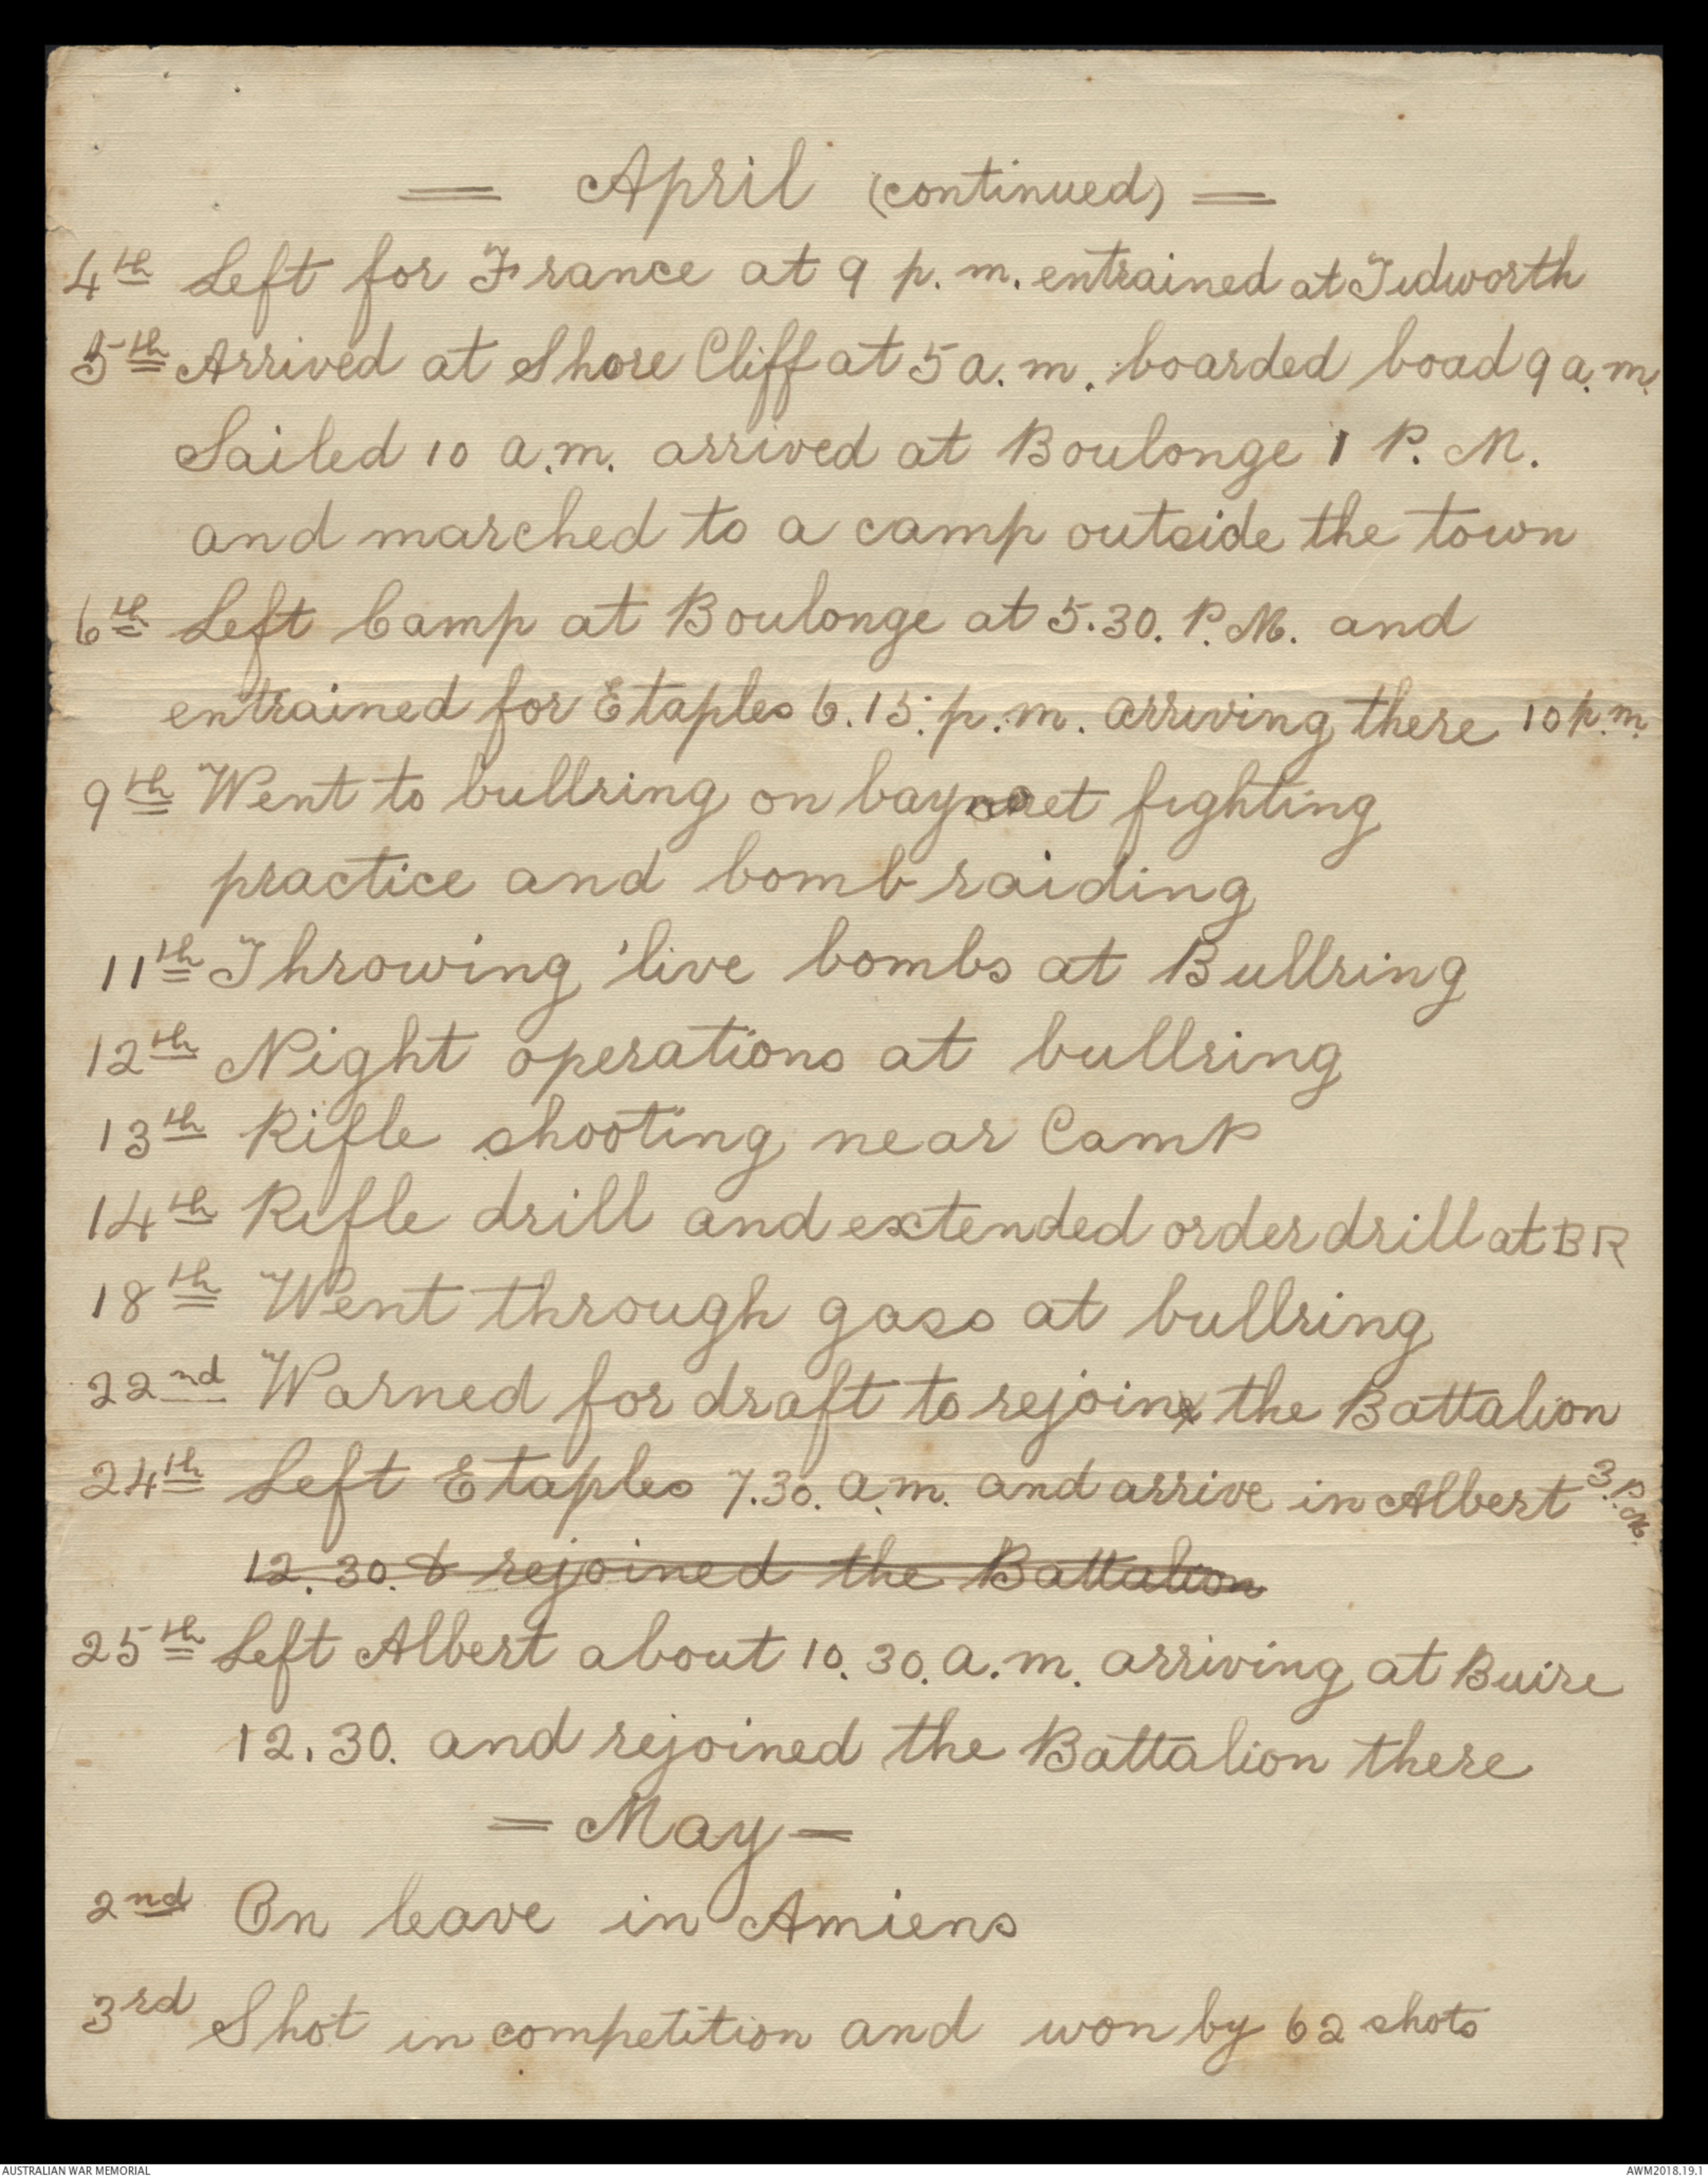 = April (continued) =
4th Left for France at 9 p.m. entrained at Tidworth
5th Arrived at Shore Cliff at 5 a.m. boarded boad 9 a.m.
Sailed 10 a.m. arrived at Boulonge 1 P.M.
and marched to a camp outside the town
6th Left Camp at Boulonge at 5.30. P.M. and
entrained for Etaples 6.15. p.m. arriving there 10 p.m.
9th Went to bullring on bayonet fighting
practice and bomb raiding
11th Throwing 'live bombs at Bullring
12th Night operations at bullring
13th Rifle shooting near Camp
14th Rifle drill and extended order drill at BR
18th Went through gass at bullring
22nd Warned for draft to rejoin the Battalion
24th Left Etaples 7.30. a.m. and arrive in Albert 3.P.M.
12.30. & rejoined the Battalion
25th Left Albert about 10.30. a.m. arriving at Buire
12.30. and rejoined the Battalion there
= May =
2nd On leave in Amiens
3rd Shot in competition and won by 62 shots
AUSTRALIAN WAR MEMORIAL
AWM2018.19.1